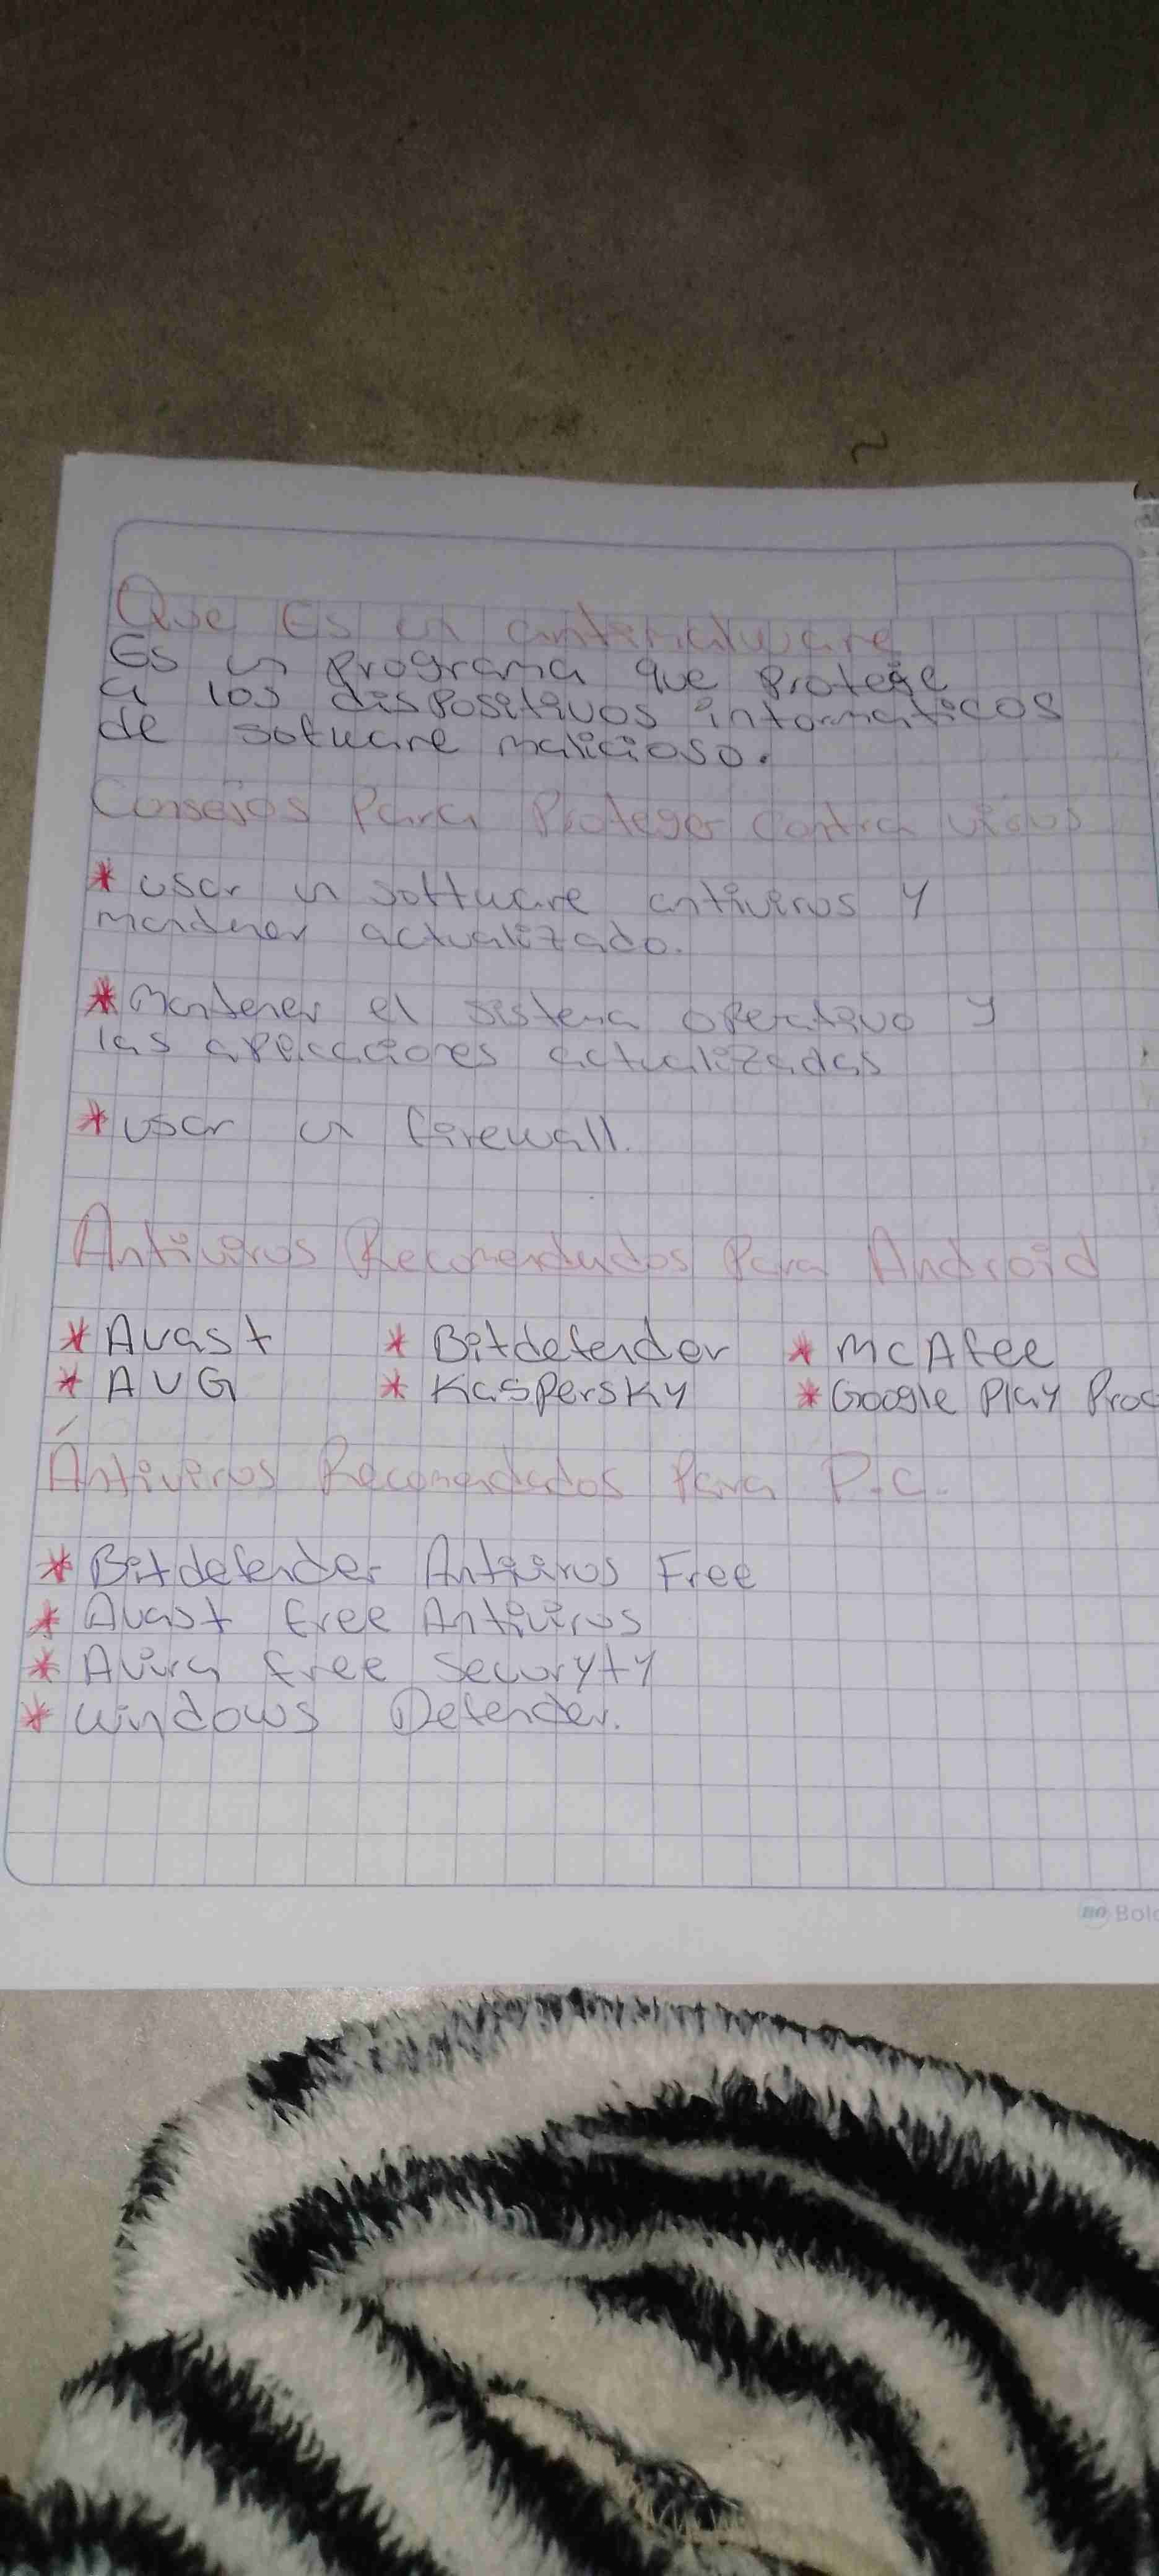 Que Es un antimalware
Es un programa que protege
a los dispositivos informaticos
de sofware malicioso.
Consejos Para Proteger contra virus
* usar un software antivirus y
mantener actualizado.
* Mantener el sistema operativo y
las aplicaciones actualizadas
* usar un firewall.
Antivirus Recomendados Para Android
* Avast * Bitdefender * McAfee
* AVG * Kaspersky * Google Play Proc
Ántivirus Recomendados Para P.C.
* Bitdefender Antivirus Free
* Avast free Antivirus
* Avira free Securyty
* windows Defender.